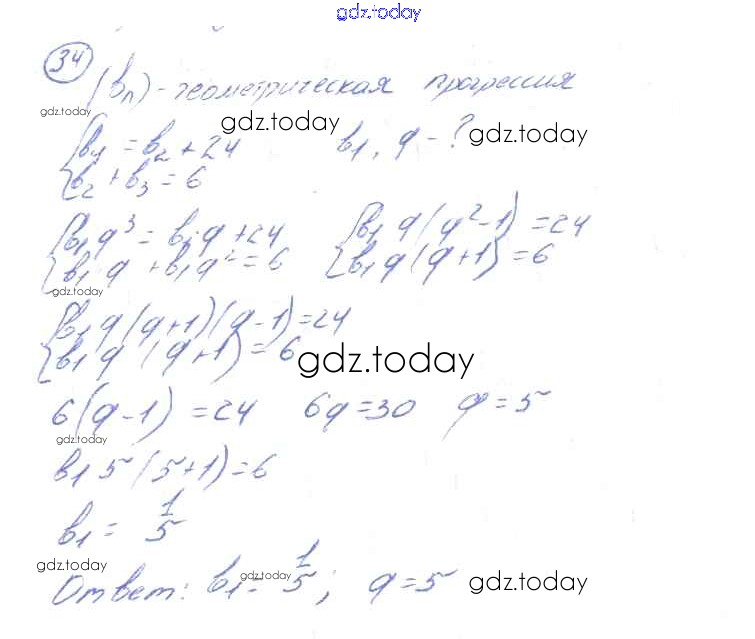 gdz.today
34
(bn) - геометрическая прогрессия
gdz.today
{b4 = b2 + 24   b1, q - ? gdz.today
gdz.today
{b2 + b3 = 6
{b1 q³ = b1 q + 24   {b1 q (q² - 1) = 24
{b1 q + b1 q² = 6   {b1 q (q + 1) = 6
gdz.today
{b1 q (q + 1)(q - 1) = 24
{b1 q (q + 1) = 6
gdz.today
6(q - 1) = 24   6q = 30   q = 5
gdz.today
b1 5 (5 + 1) = 6
b1 = 1/5
gdz.today
Ответ: b1 = 1/5; q = 5
gdz.today
gdz.today